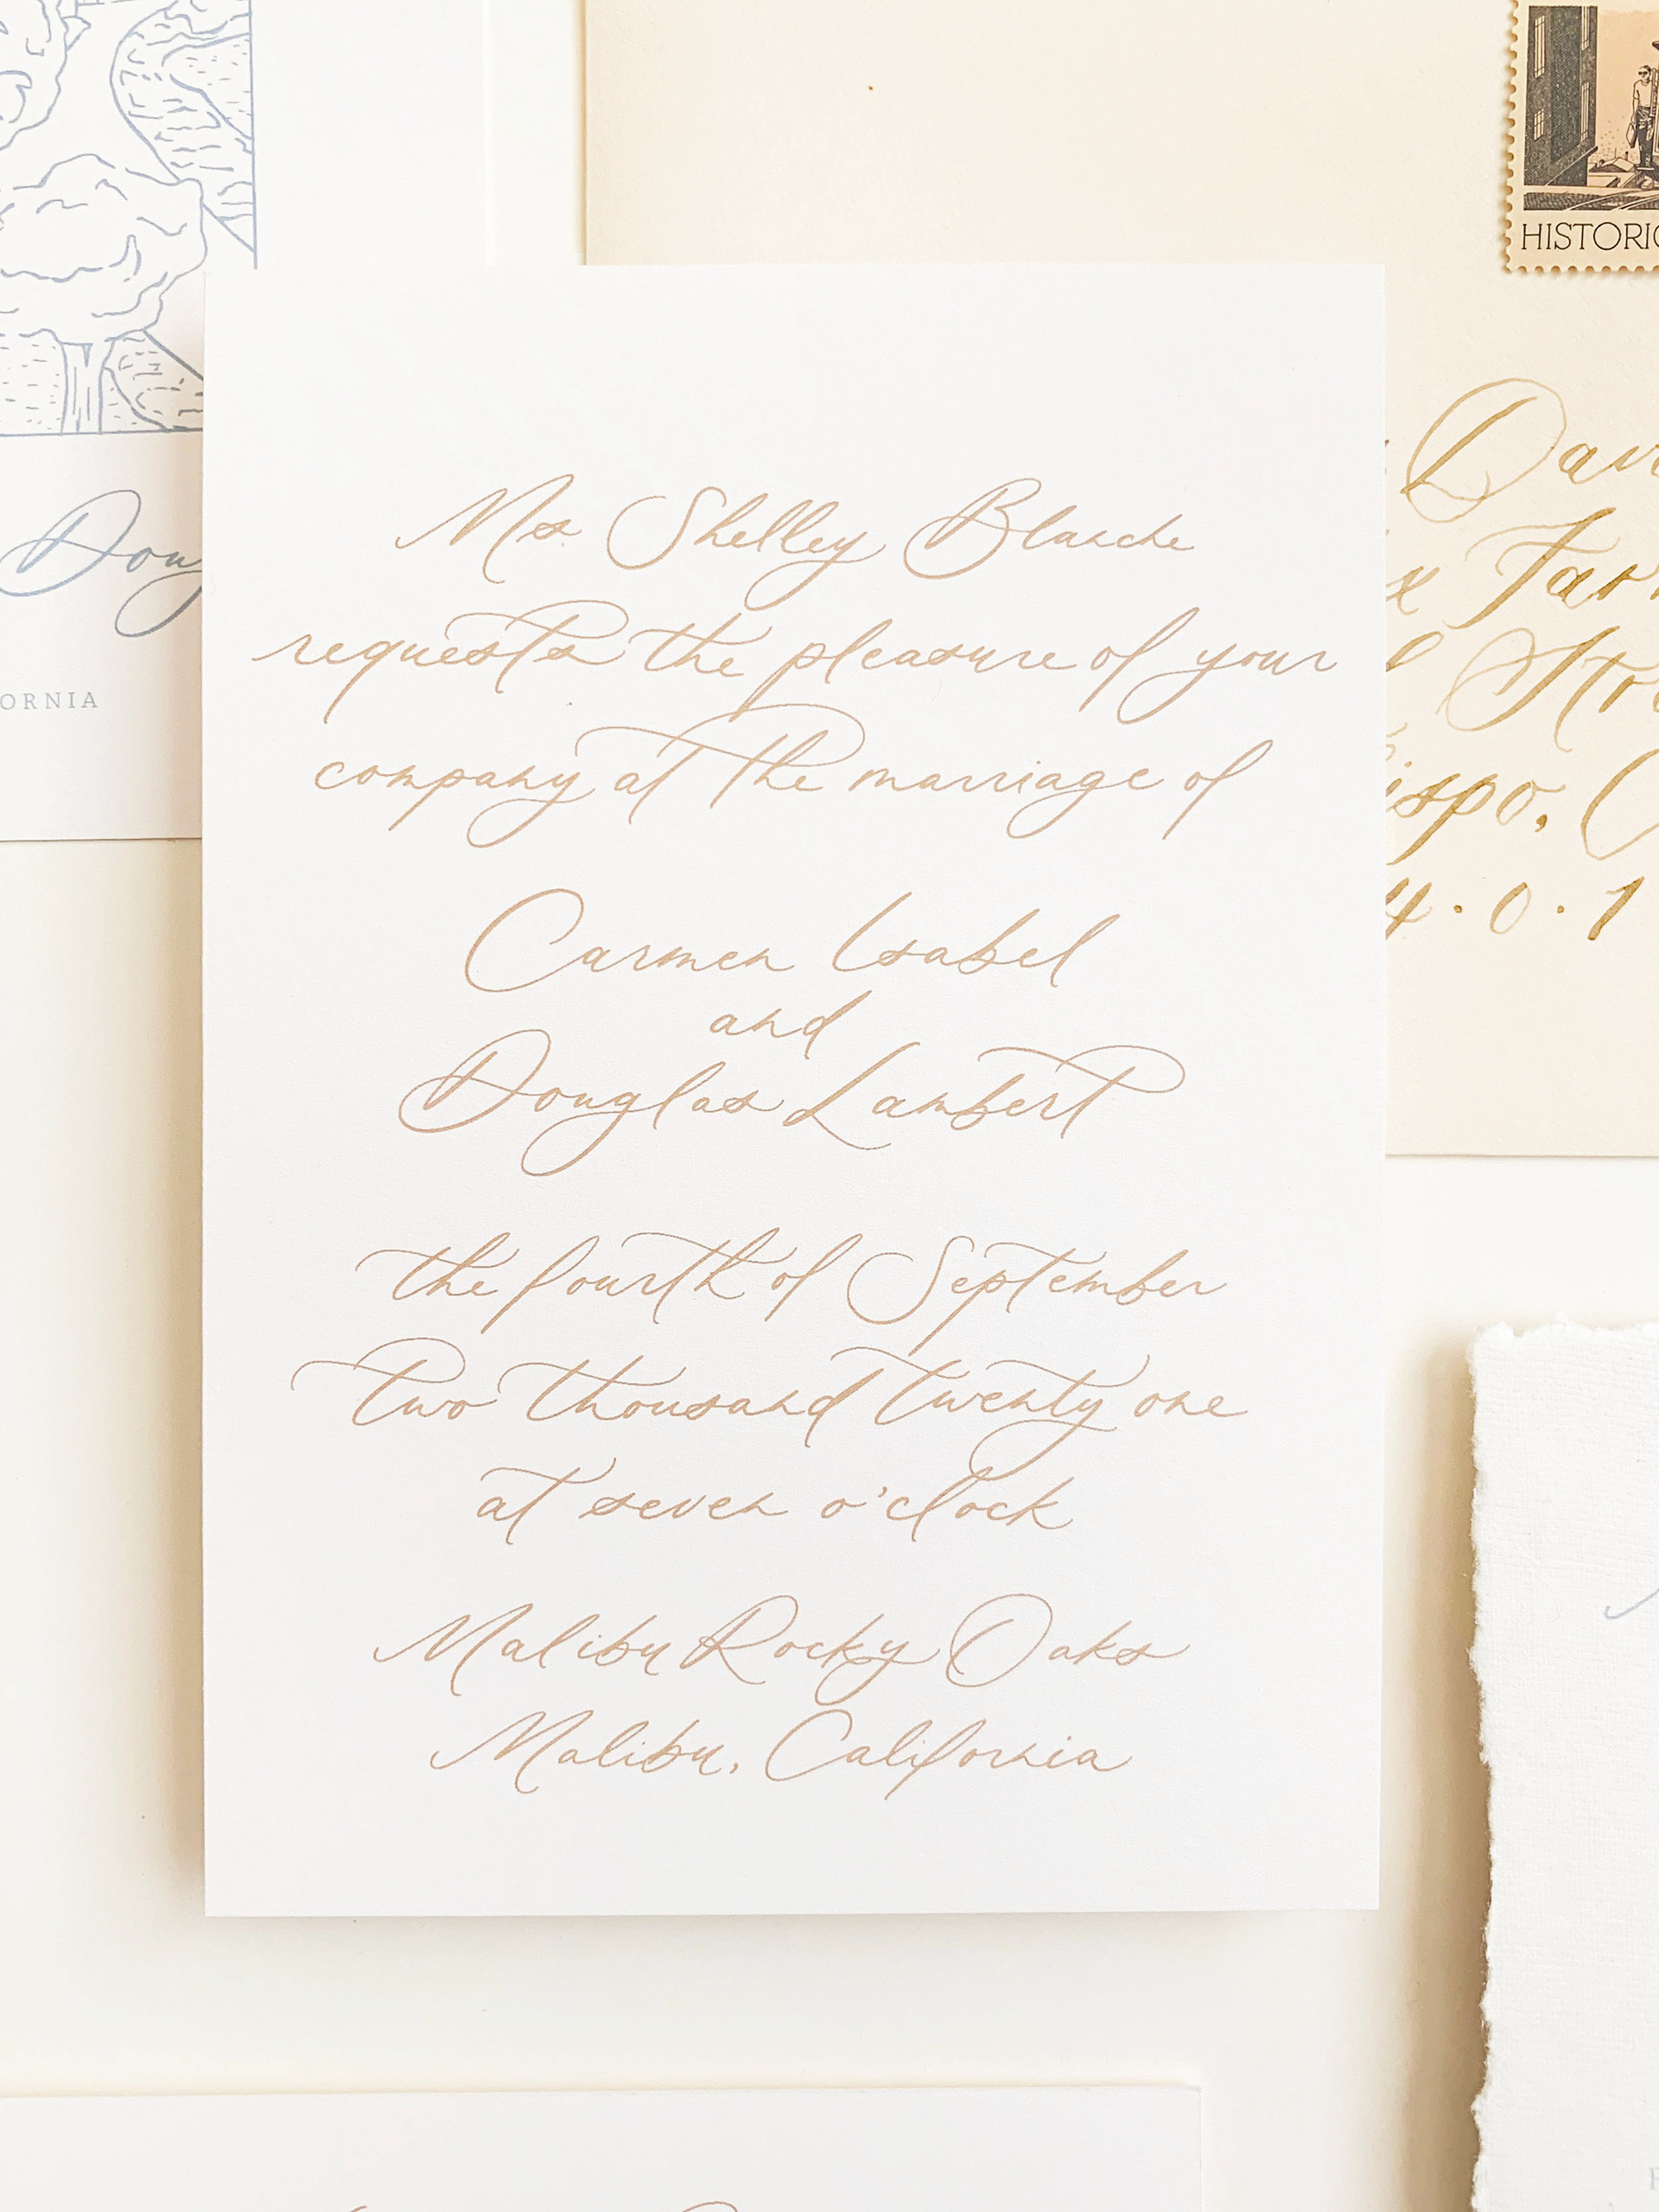 Ms. Shelley Blanche
requests the pleasure of your
company at the marriage of
Carmen Isabel
and
Douglas Lambert
the fourth of September
Two thousand twenty one
at seven o'clock
Malibu Rocky Oaks
Malibu, California
Doug
ORNIA
HISTORIC
Dav
x Far
l Stre
ispo, C
4.0.1